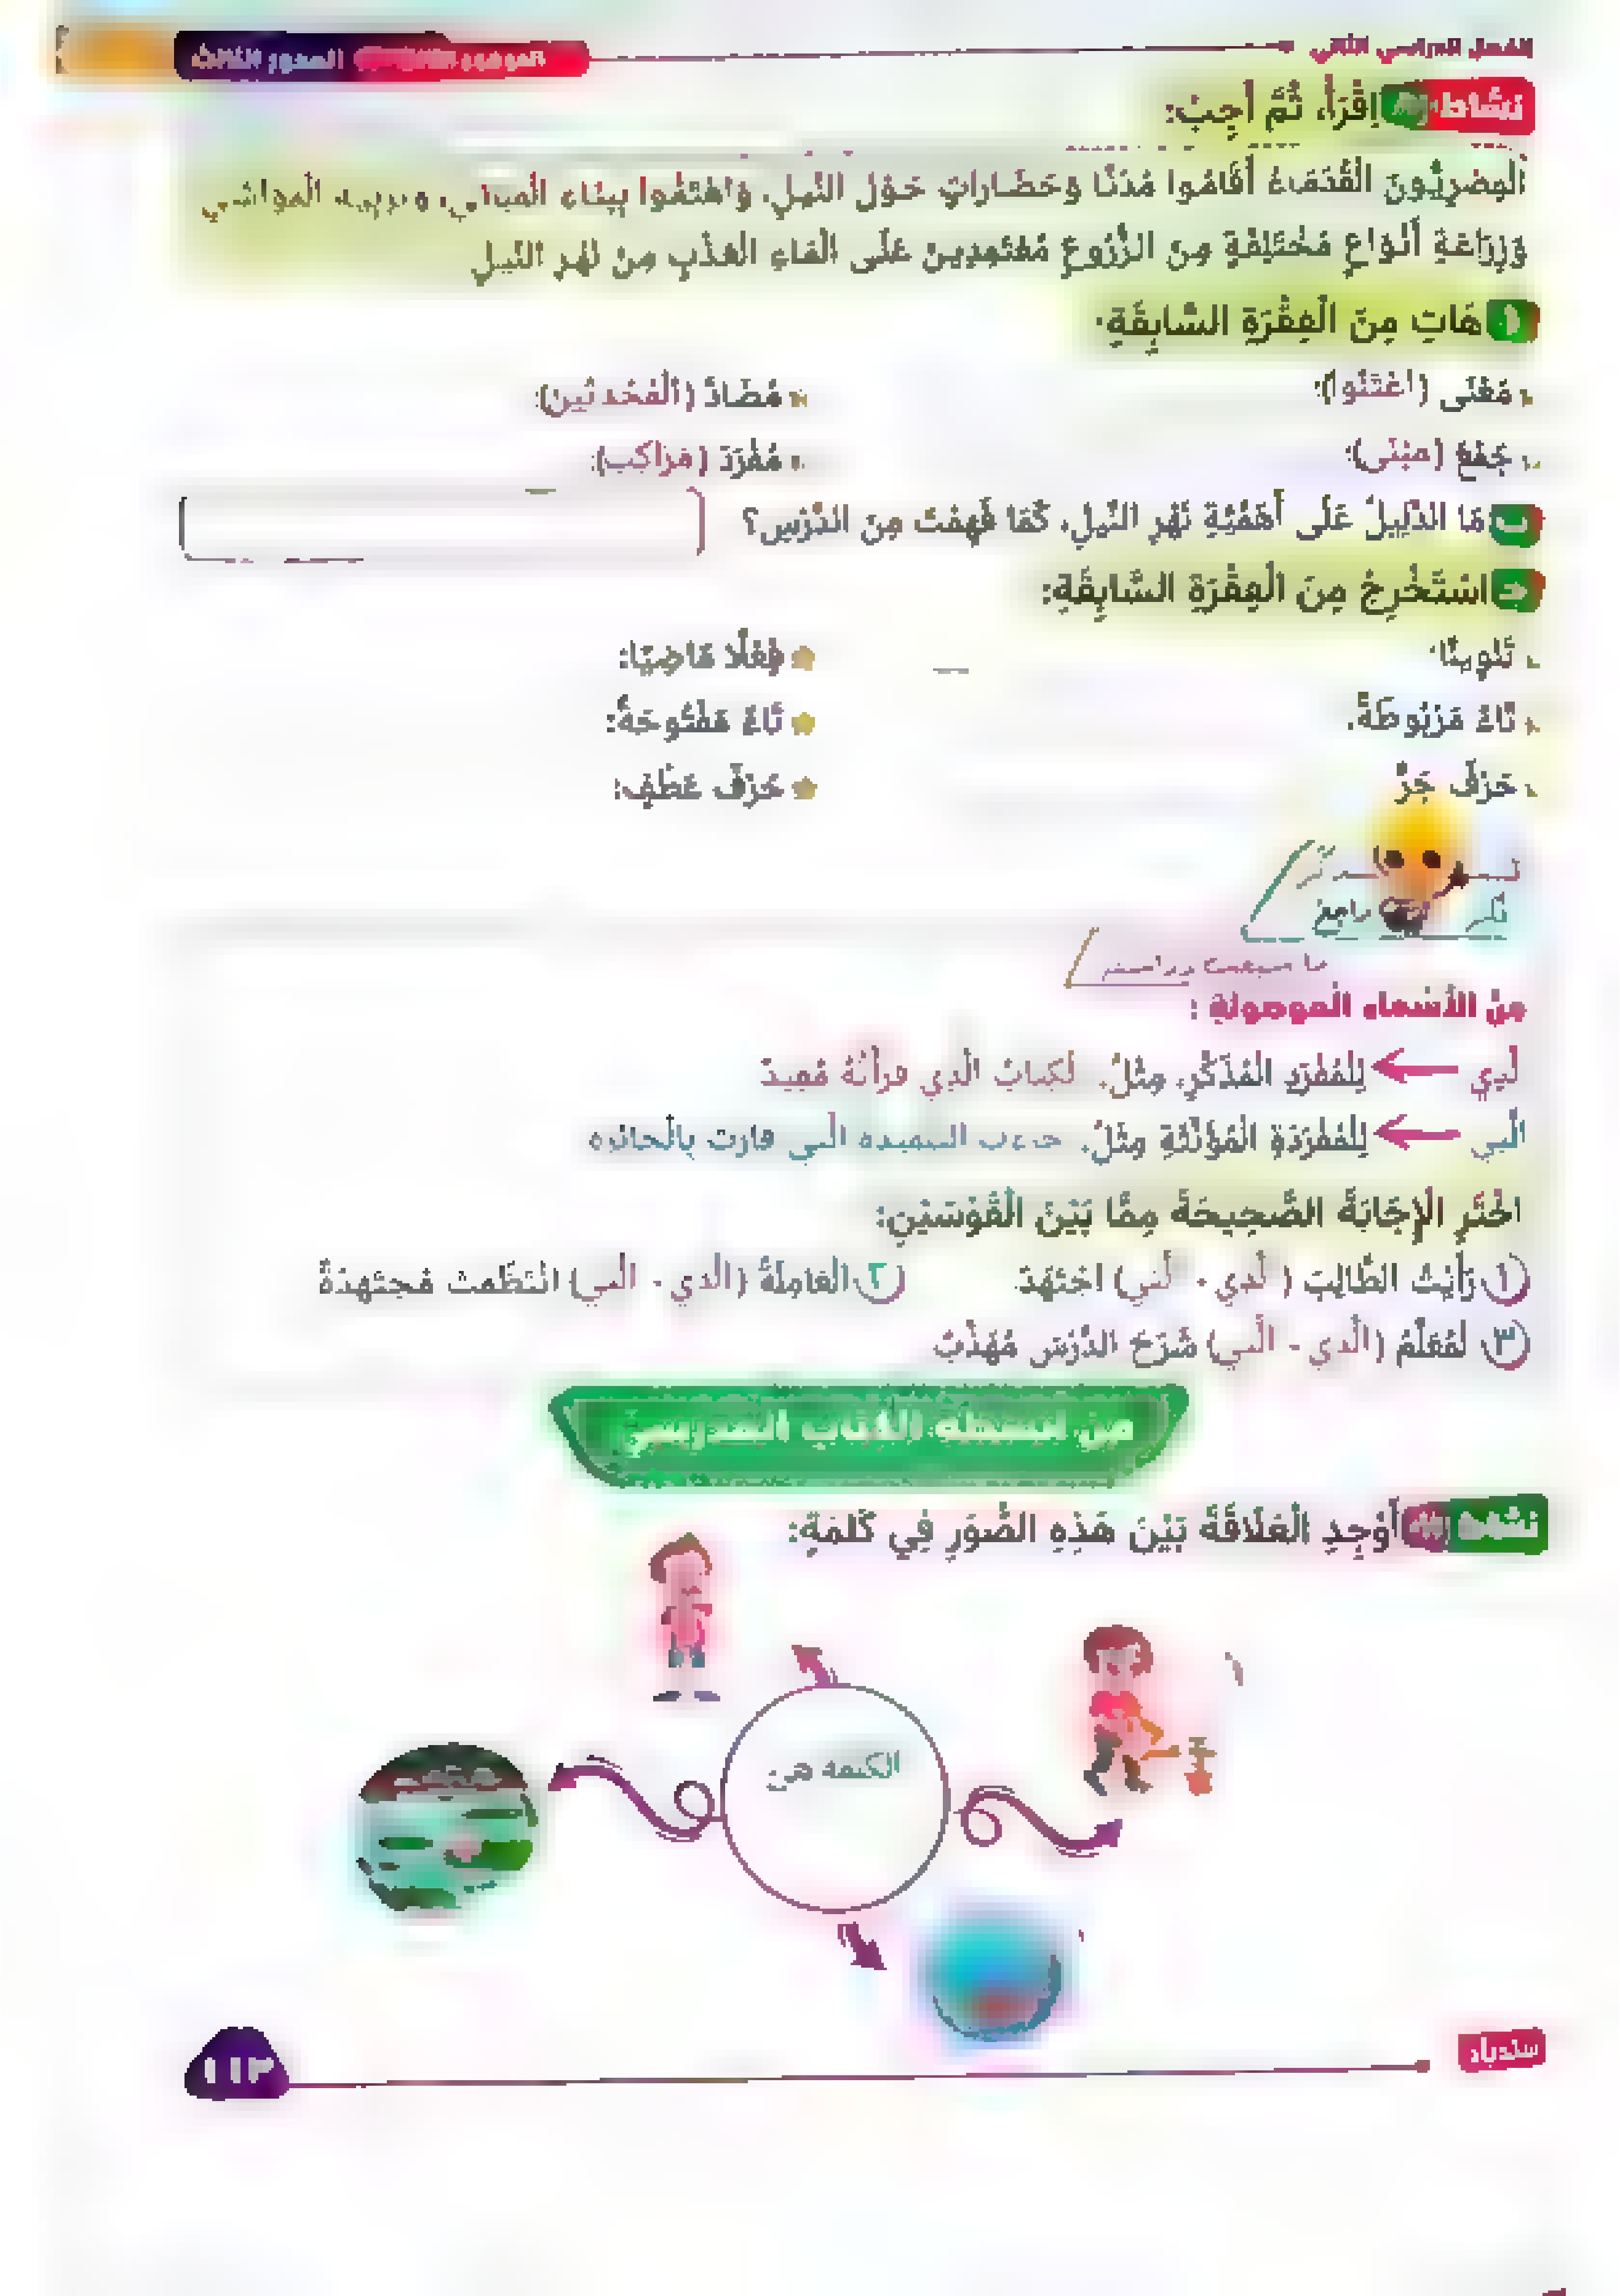 الفصل الدراسي الثاني
المحور الثالث
نشاط اِقْرَأْ، ثُمَّ أَجِبْ:
الْمِصْرِيُّونَ الْقُدَمَاءُ أَقَامُوا مُدُنًا وَحَضَارَاتٍ حَوْلَ النِّيلِ، وَاهْتَمُّوا بِبِنَاءِ الْمَبَانِي، وَتَرْبِيَةِ الْمَوَاشِي
وَزِرَاعَةِ أَنْوَاعٍ مُخْتَلِفَةٍ مِنَ الزُّرُوعِ مُعْتَمِدِينَ عَلَى الْمَاءِ الْعَذْبِ مِنْ نَهْرِ النِّيلِ
أ هَاتِ مِنَ الْفِقْرَةِ السَّابِقَةِ:
مَعْنَى (اعْتَنَوْا): مُضَادَّ (الْمُحْدَثِينَ):
جَمْعَ (مَبْنَى): مُفْرَدَ (مَرَاكِب):
ب مَا الدَّلِيلُ عَلَى أَهَمِّيَّةِ نَهْرِ النِّيلِ، كَمَا فَهِمْتَ مِنَ الدَّرْسِ؟
ج اسْتَخْرِجْ مِنَ الْفِقْرَةِ السَّابِقَةِ:
تَنْوِينًا: فِعْلًا مَاضِيًا:
تَاءً مَرْبُوطَةً: تَاءً مَفْتُوحَةً:
حَرْفَ جَرٍّ حَرْفَ عَطْفٍ:
راجع
ما سبقت دراسته
مِنَ الْأَسْمَاءِ الْمَوْصُولَةِ :
الَّذِي لِلْمُفْرَدِ الْمُذَكَّرِ، مِثْلُ: الْكِتَابُ الَّذِي قَرَأْتُهُ مُفِيدٌ
الَّتِي لِلْمُفْرَدَةِ الْمُؤَنَّثَةِ مِثْلُ: التلميذة الَّتِي فازت بِالْجائزة
اخْتَرِ الْإِجَابَةَ الصَّحِيحَةَ مِمَّا بَيْنَ الْقَوْسَيْنِ:
١ رَأَيْتُ الطَّالِبَ (الَّذِي - الَّتِي) اجْتَهَدَ ٢ الْعَامِلَةُ (الَّذِي - الَّتِي) انْتَظَمَتْ مُجْتَهِدَةٌ
٣ الْمُعَلِّمُ (الَّذِي - الَّتِي) شَرَحَ الدَّرْسَ مُهَذَّبٌ
من أنشطة الكتاب المدرسي
نشاط أَوْجِدِ الْعَلَاقَةَ بَيْنَ هَذِهِ الصُّوَرِ فِي كَلِمَةٍ:
الكلمة هي
سندباد
١١٣